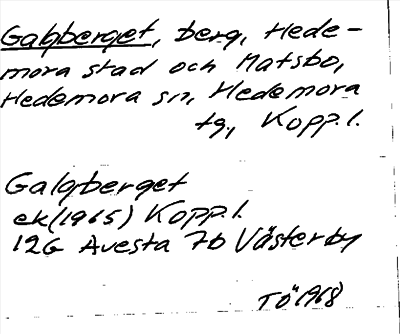 Galgberget, berg, Hede-
mora stad och Matsbo,
Hedemora sn, Hedemora
tg, Kopp.l.
Galgberget
ek(1965) Kopp.l.
12G Avesta 7b Västerby
TÖ 1968